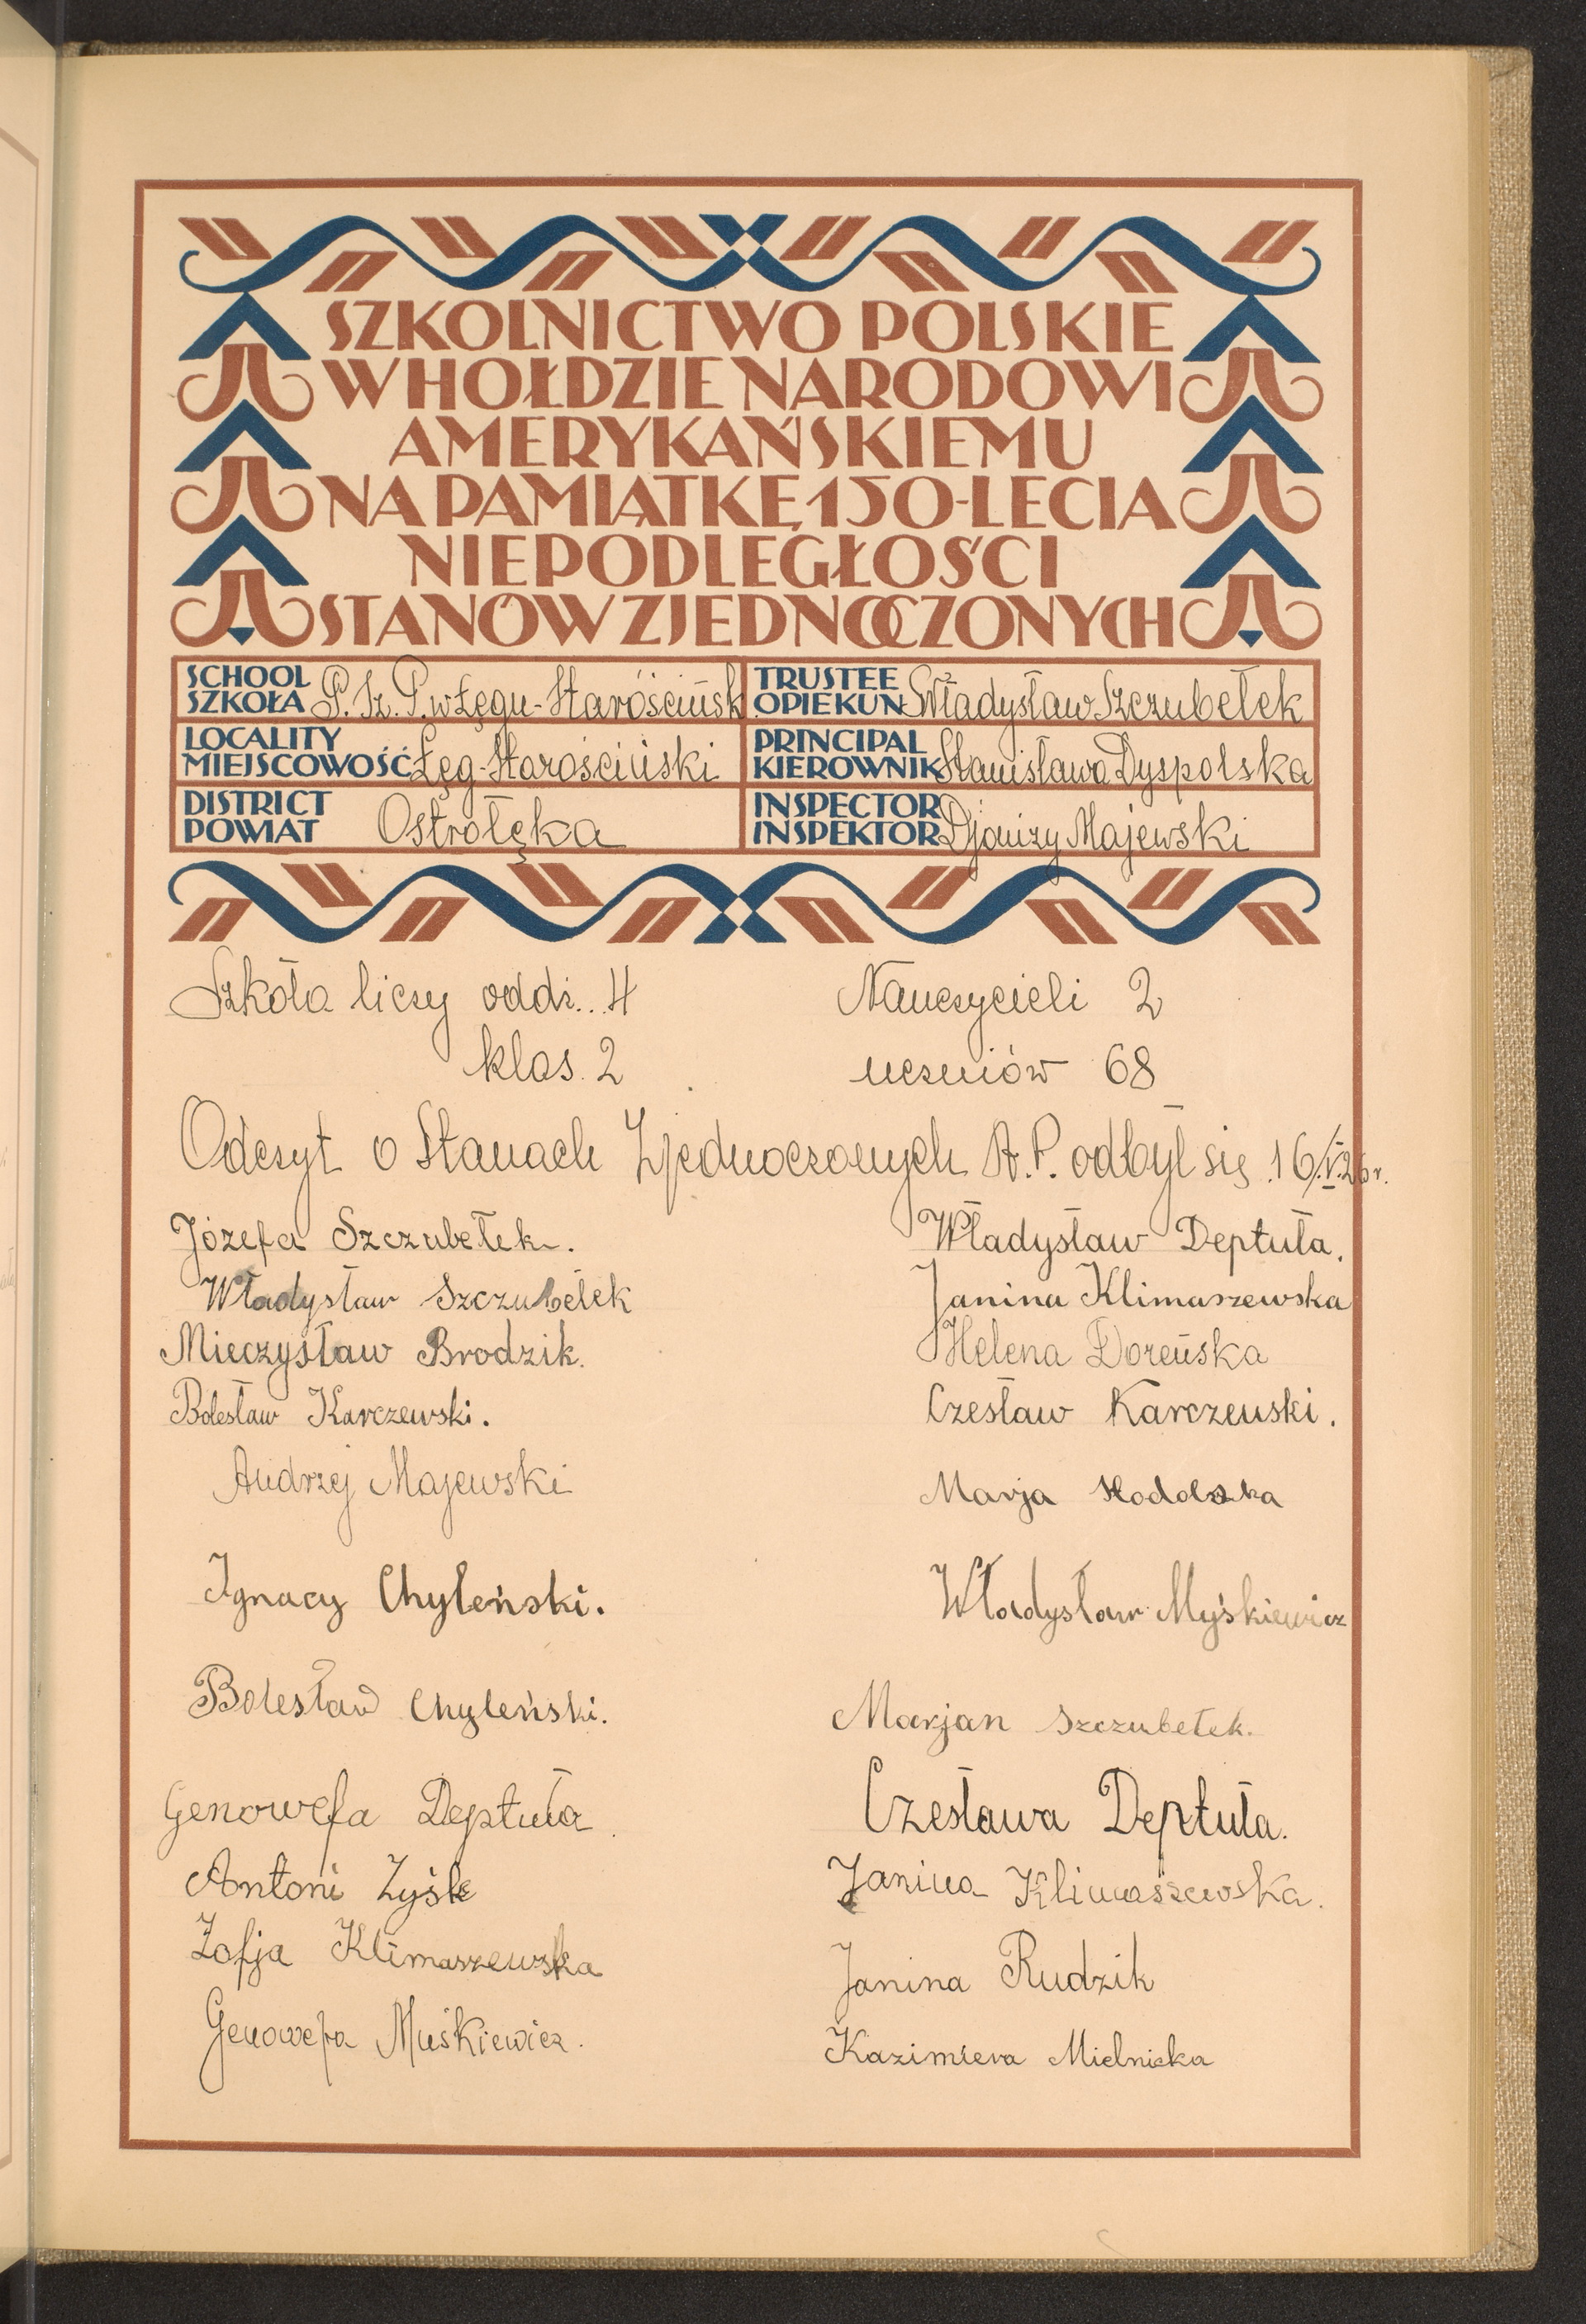 SZKOLNICTWO POLSKIE
W HOŁDZIE NARODOWI
AMERYKAŃSKIEMU
NA PAMIĄTKĘ 150-LECIA
NIEPODLEGŁOŚCI
STANÓW ZJEDNOCZONYCH
SCHOOL
SZKOŁA P. Sz. P. w Łęgu-Starościńsk
TRUSTEE
OPIEKUN Władysław Szczubełek
LOCALITY
MIEJSCOWOŚĆ Łęg-Starościński
PRINCIPAL
KIEROWNIK Stanisława Dyspolska
DISTRICT
POWIAT Ostrołęka
INSPECTOR
INSPEKTOR Majewski
Szkoła liczy oddz. 4 Nauczycieli 2
klas. 2 uczniów 68
Odczyt o Stanach Zjednoczonych A. P. odbył się 16/V.26 r.
Józefa Szczubełek. Władysław Deptuła.
Władysław Szczubełek Janina Klimaszewska
Mieczysław Brodzik. Helena Doreńska
Bolesław Karczewski. Czesław Karczewski.
Andrzej Majewski Marja
Ignacy Chyleński. Władysław Myśkiewicz
Bolesław Chyleński. Marjan Szczubełek.
Genowefa Deptuła Czesława Deptuła.
Antoni Zyśk Janina Klimaszewska.
Zofja Klimaszewska Janina Rudzik
Genowefa Muśkiewicz. Kazimiera Mielnicka